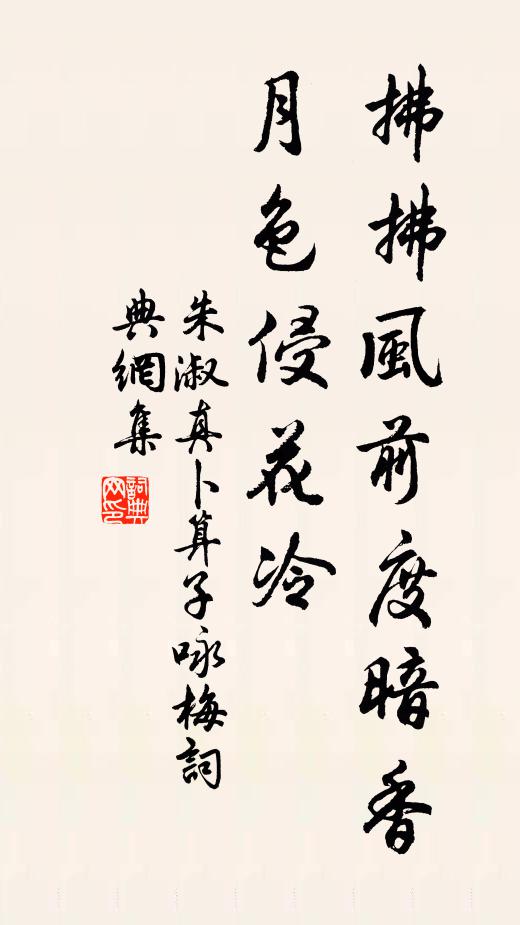 拂拂風前度暗香
月色侵花冷
朱淑真卜算子咏梅詞
典網集
詞典網印